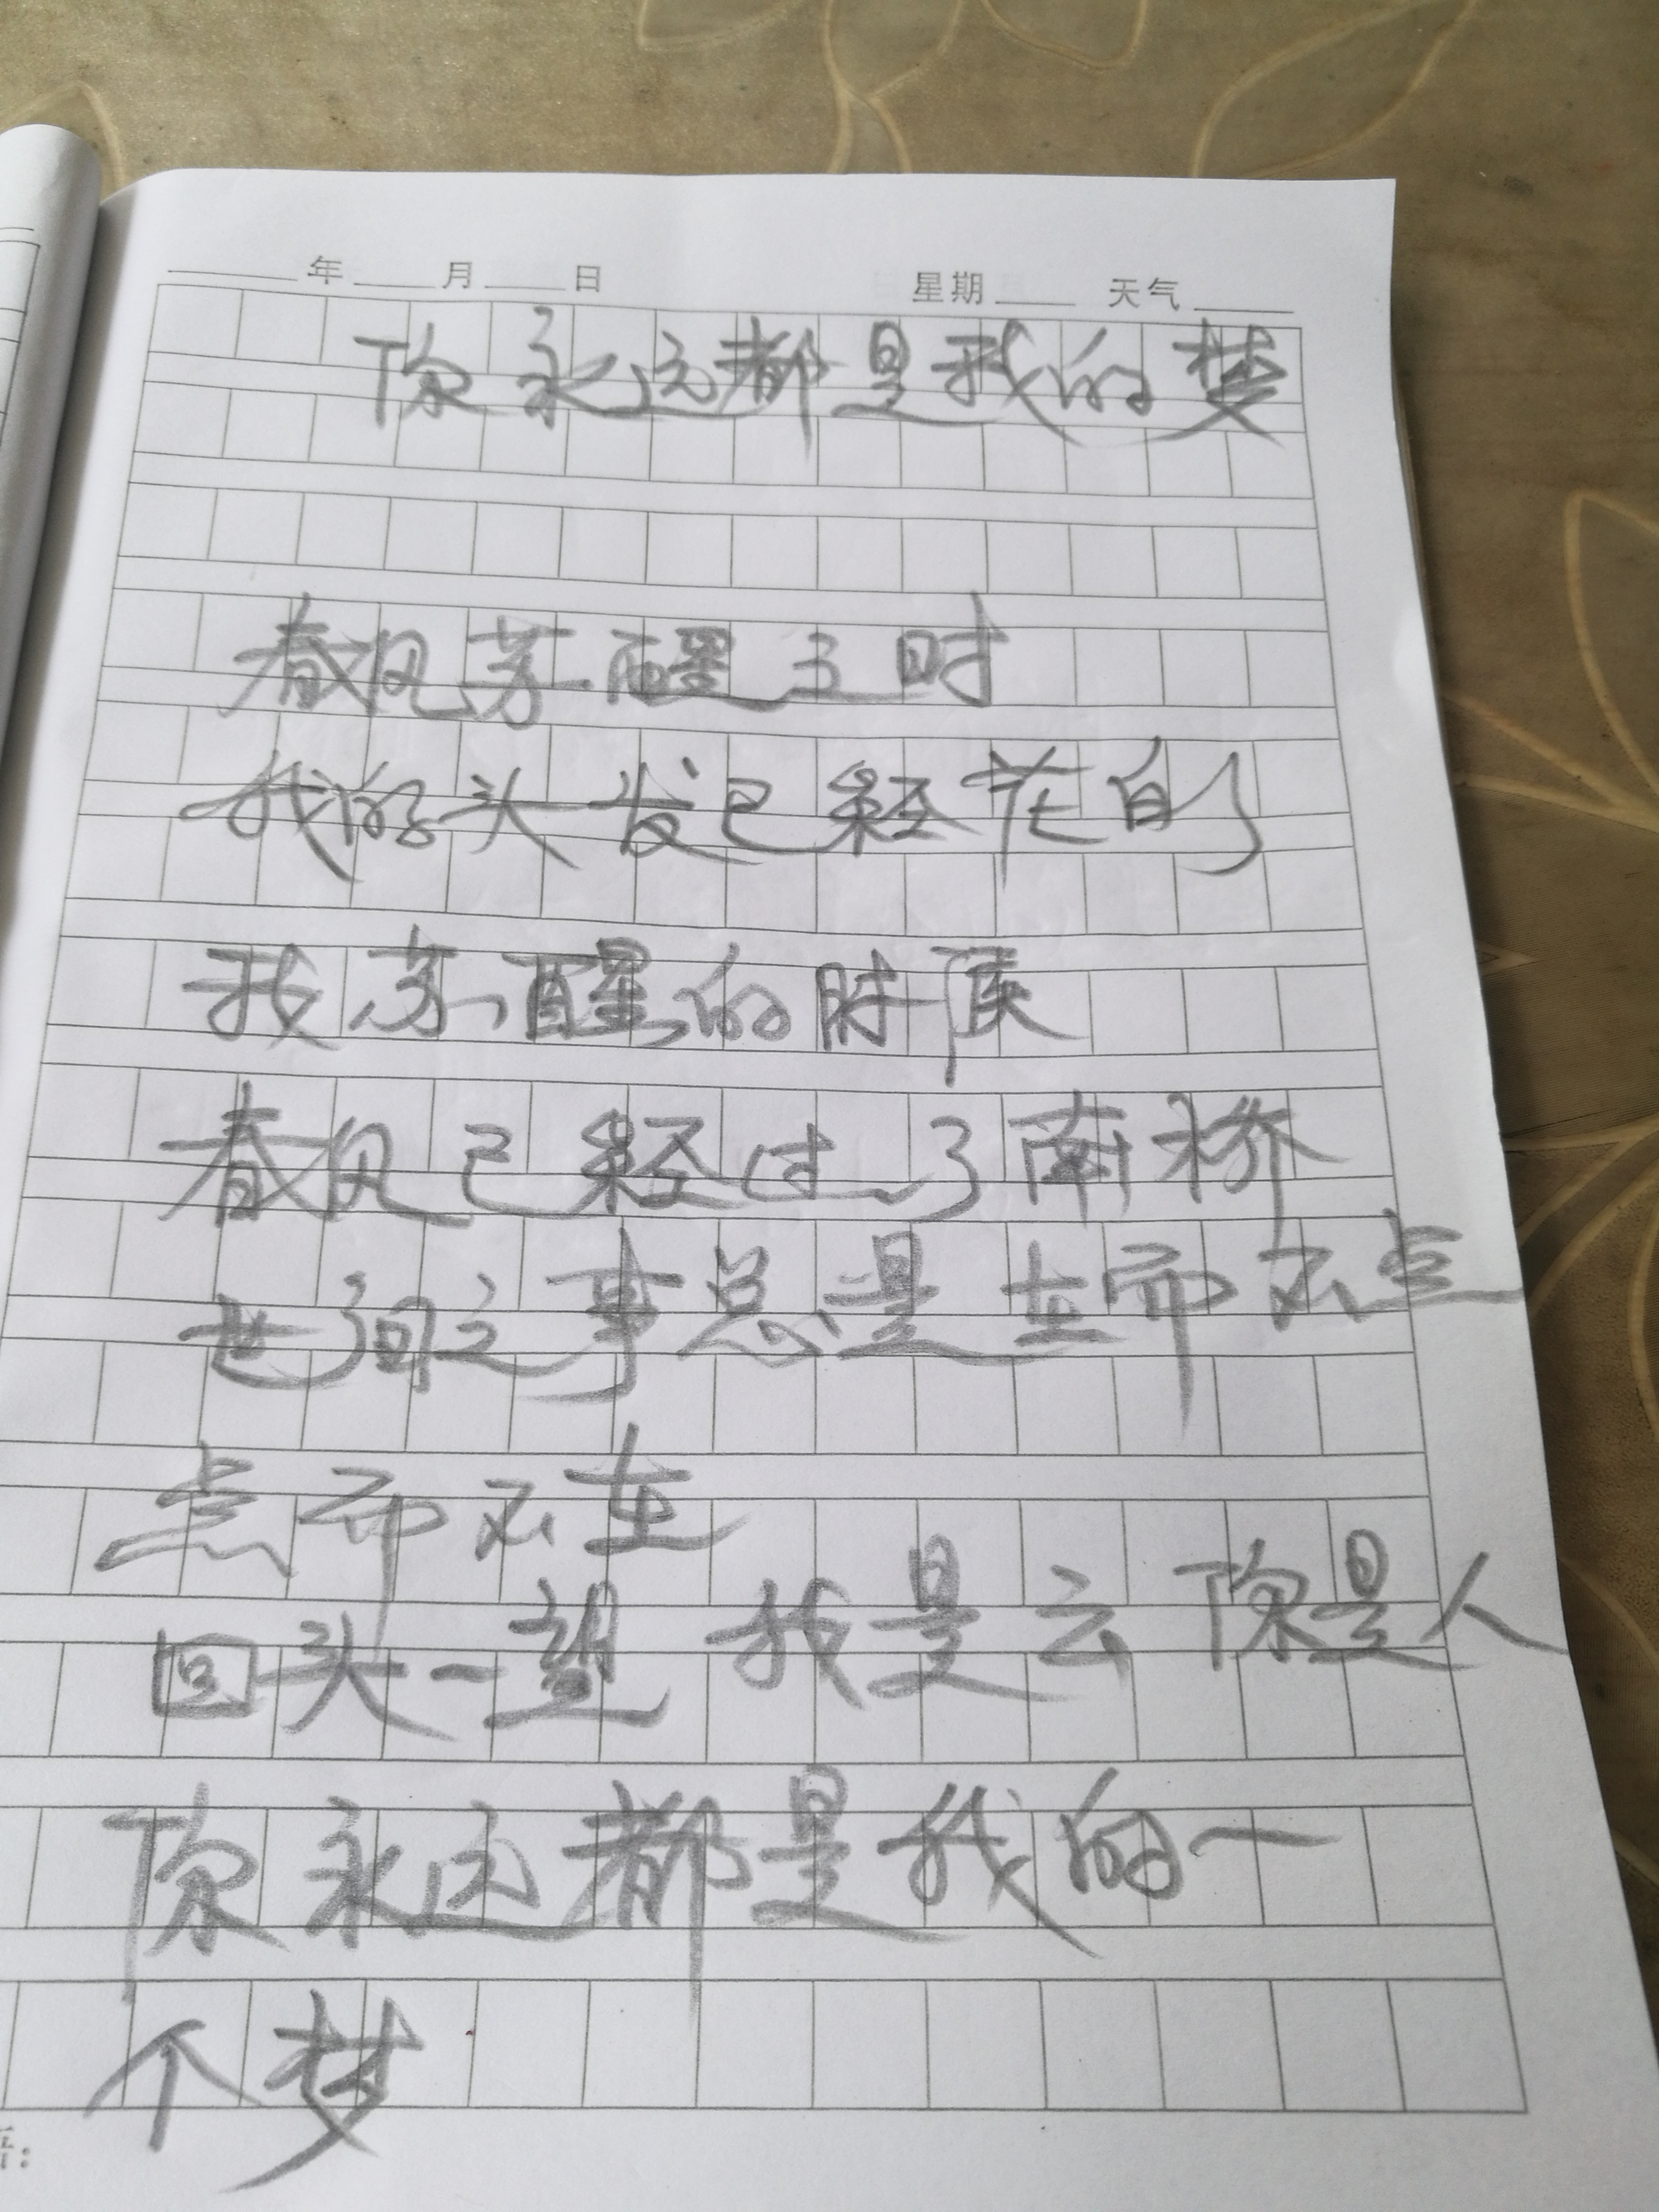 年 月 日 星期 天气
你永远都是我的梦
春风苏醒之时
我的头发已经花白了
我苏醒的时候
春风已经过了南桥
世间之事总是在而不点
点而不在
回头一望 我是云 你是人
你永远都是我的一
个梦